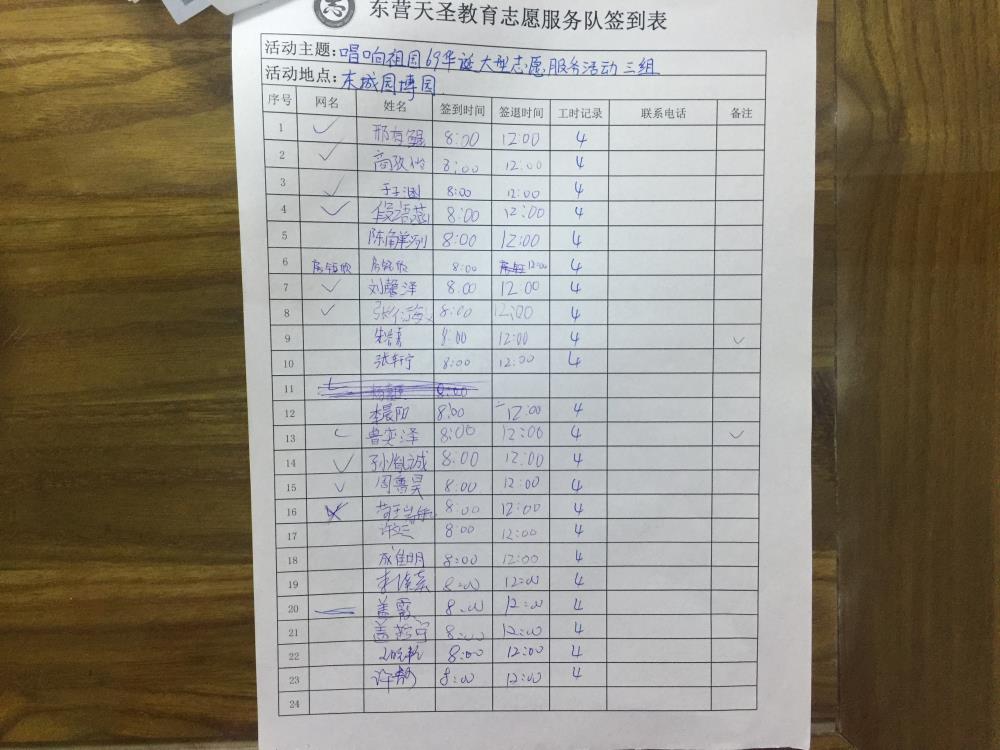 志
东营天圣教育志愿服务队签到表
活动主题:唱响祖国69华诞大型志愿服务活动三组
活动地点:东城园博园
序号 网名 姓名 签到时间 签退时间 工时记录 联系电话 备注
1 ✓ 8:00 12:00 4
2 ✓ 8:00 12:00 4
3 ✓ 于子渊 8:00 12:00 4
4 ✓ 段语燕 8:00 12:00 4
5 8:00 12:00 4
6 8:00 12:00 4
7 ✓ 刘馨泽 8:00 12:00 4
8 ✓ 8:00 12:00 4
9 8:00 12:00 4 ✓
10 张轩宁 8:00 12:00 4
11 8:00
12 李晨阳 8:00 12:00 4
13 ✓ 曹奕泽 8:00 12:00 4 ✓
14 ✓ 8:00 12:00 4
15 ✓ 8:00 12:00 4
16 8:00 12:00 4
17 8:00 12:00 4
18 成佳明 8:00 12:00 4
19 8:00 12:00 4
20 盖霞 8:00 12:00 4
21 8:00 12:00 4
22 8:00 12:00 4
23 8:00 12:00 4
24